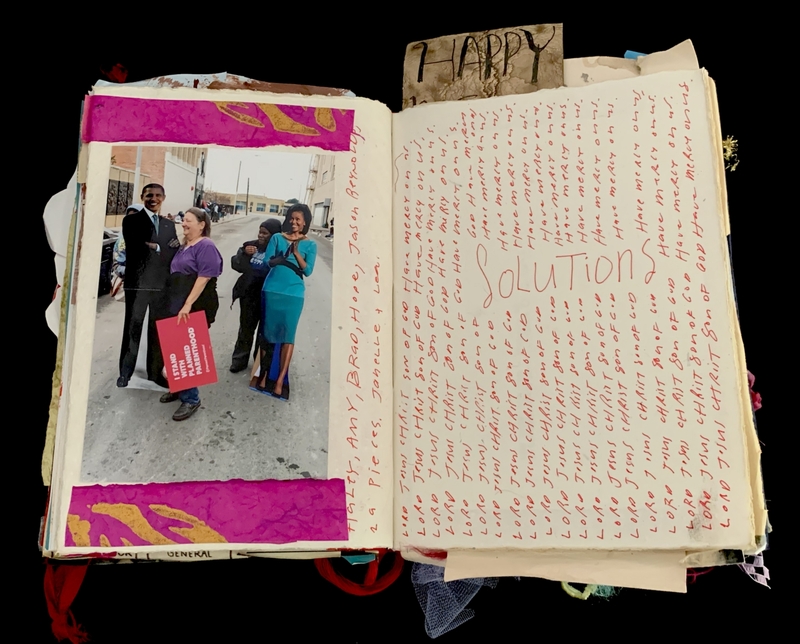 HAPPY
I STAND
WITH
PLANNED
PARENTHOOD
Haley, AMY, BRAD, Hope, Jason Reynolds
GENERAL
SOLUTIONS
LORD JESUS CHRIST Son OF GOD Have MERCY on us.
LORD JESUS CHRIST Son OF GOD Have MERCY on us.
LORD JESUS CHRIST Son OF GOD Have MERCY on us.
LORD JESUS CHRIST Son OF GOD Have MERCY on us.
LORD JESUS CHRIST Son OF GOD Have MERCY on us.
LORD JESUS CHRIST Son OF GOD Have MERCY on us.
LORD JESUS CHRIST Son OF GOD Have MERCY on us.
LORD JESUS CHRIST Son OF GOD Have MERCY on us.
LORD JESUS CHRIST Son OF GOD Have MERCY on us.
LORD JESUS CHRIST Son OF GOD Have MERCY on us.
LORD JESUS CHRIST Son OF GOD Have MERCY on us.
LORD JESUS CHRIST Son OF GOD Have MERCY on us.
LORD JESUS CHRIST Son OF GOD Have MERCY on us.
LORD JESUS CHRIST Son OF GOD Have MERCY on us.
LORD JESUS CHRIST Son OF GOD Have MERCY on us.
LORD JESUS CHRIST Son OF GOD Have MERCY on us.
LORD JESUS CHRIST Son OF GOD Have MERCY on us.
LORD JESUS CHRIST Son OF GOD Have MERCY on us.
LORD JESUS CHRIST Son OF GOD Have MERCY on us.